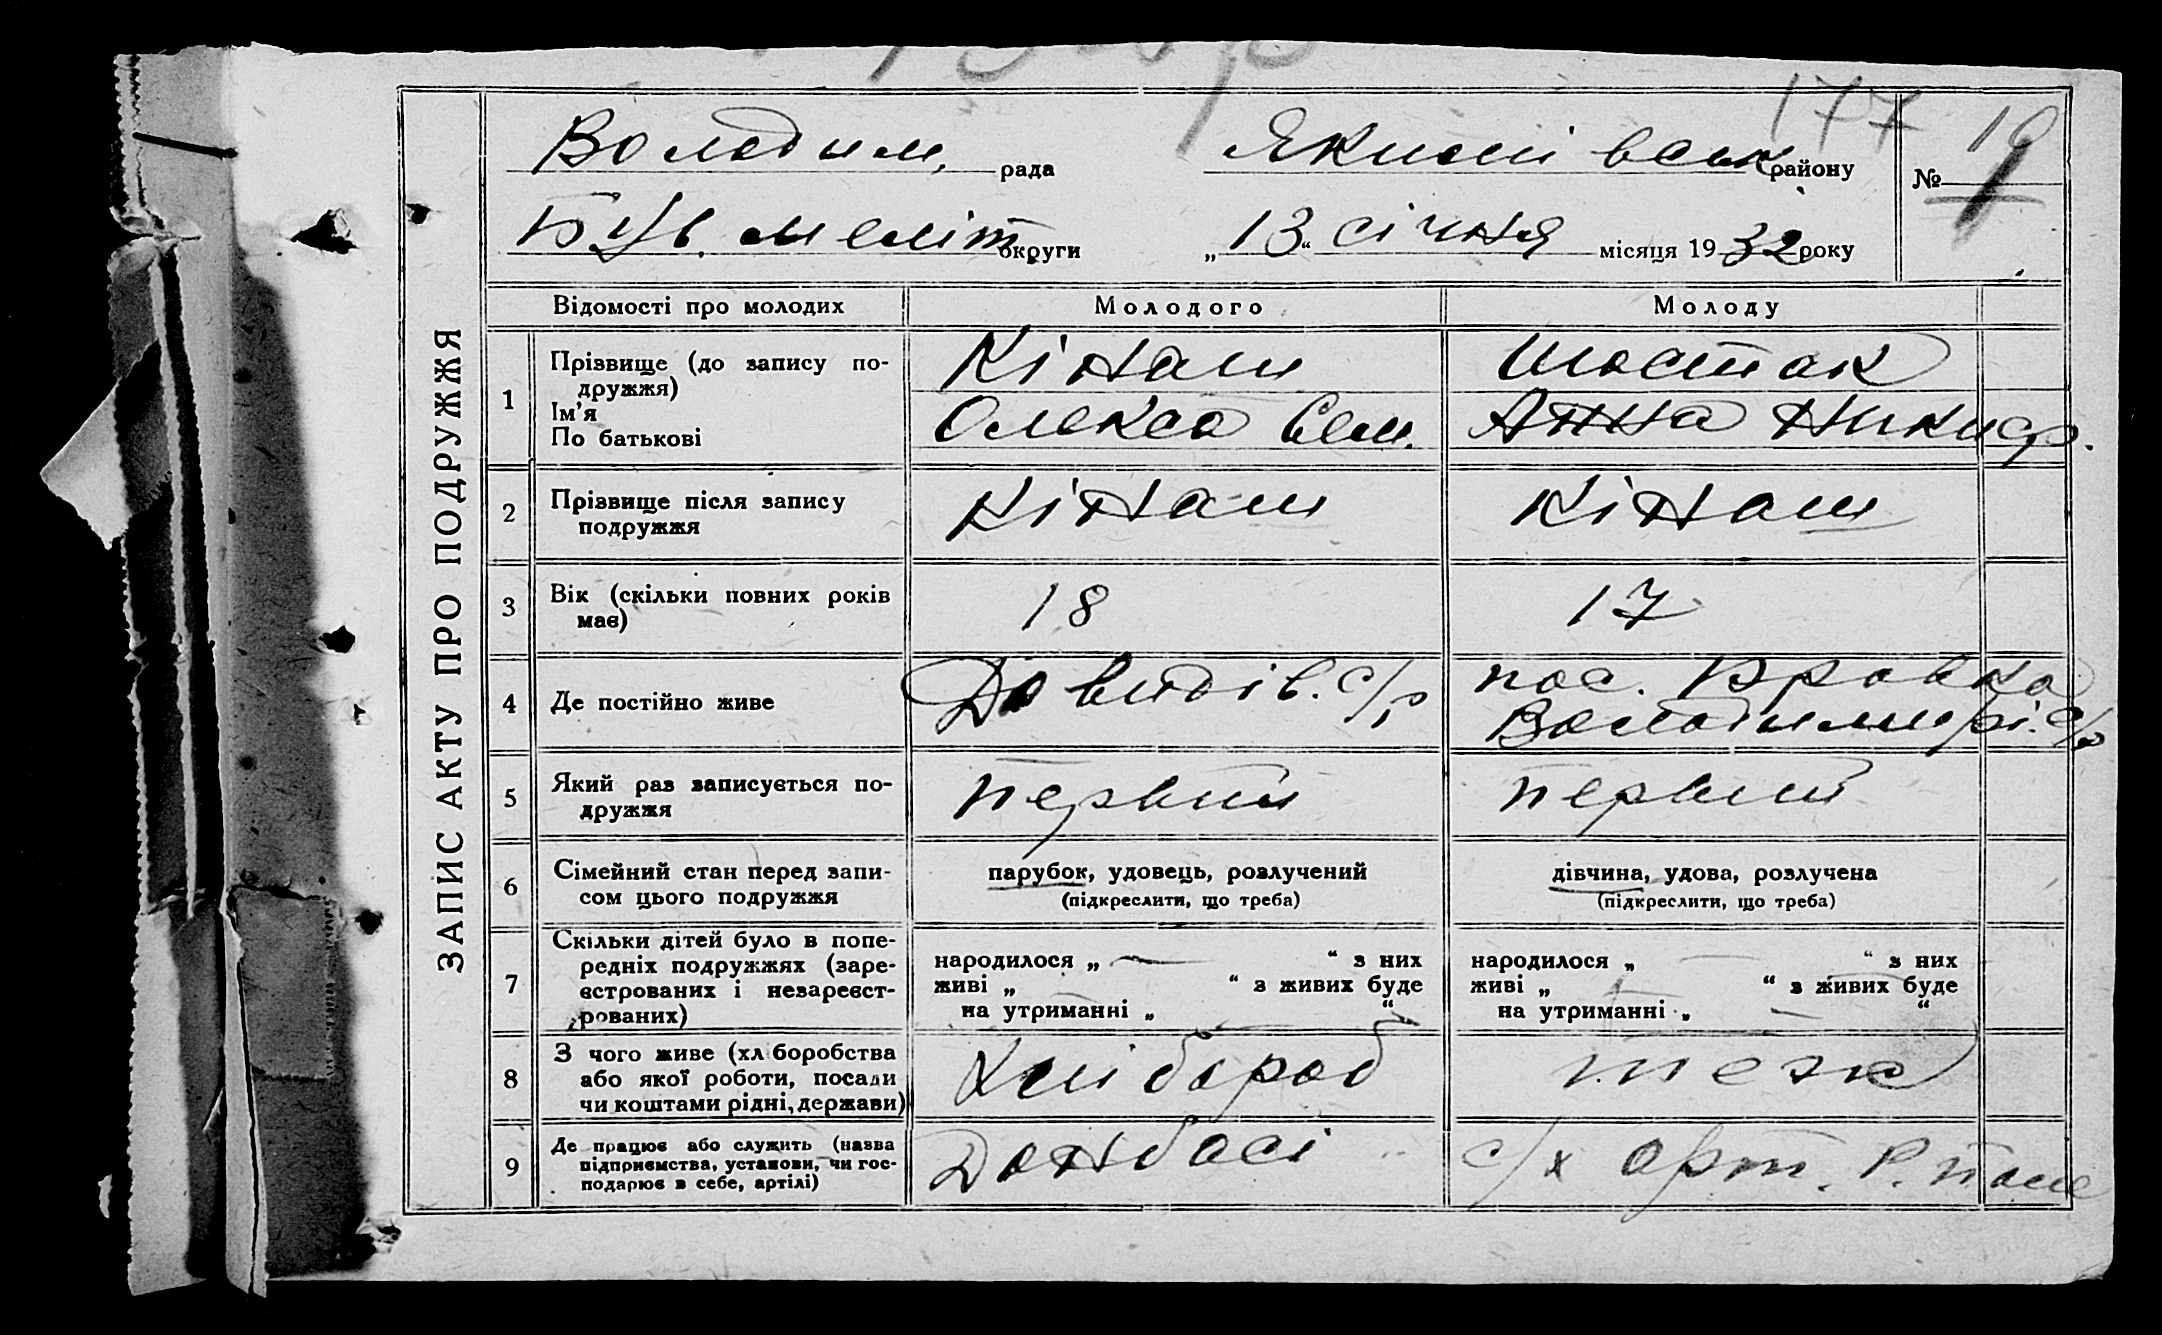 177
Володим. рада Якимівськ району № 19
Був. меліт округи „13“ січня місяця 1932 року
ЗАПИС АКТУ ПРО ПОДРУЖЖЯ
Відомості про молодих Молодого Молоду
1 Прізвище (до запису по-
дружжя) Кінаш Шостак
Ім’я
По батькові Олекса Сем. Анна Никиф.
2 Прізвище після запису
подружжя Кінаш Кінаш
3 Вік (скільки повних років
має) 18 17
4 Де постійно живе Давидів. с/р пос.
Володимирі. с/р
5 Який раз записується по-
дружжя первий первий
6 Сімейний стан перед запи-
сом цього подружжя
парубок, удовець, розлучений дівчина, удова, розлучена
(підкреслити, що треба) (підкреслити, що треба)
7 Скільки дітей було в попе-
редніх подружжях (заре-
єстрованих і незареєст-
рованих)
народилося „ — “ з них народилося „ — “ з них
живі „ — “ з живих буде живі „ — “ з живих буде
на утриманні „ — “ на утриманні „ — “
8 З чого живе (хліборобства
або якої роботи, посади
чи коштами рідні, держави) Хлібороб теж
9 Де працює або служить (назва
підприємства, установи, чи гос-
подарює в себе, артілі) Донбасі с/х арт. Р.